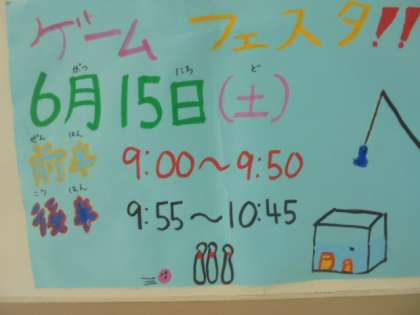 ゲームフェスタ!!
がつ にち ど
6月15日(土)
ぜん はん
前半 9:00～9:50
こう はん
後半 9:55～10:45